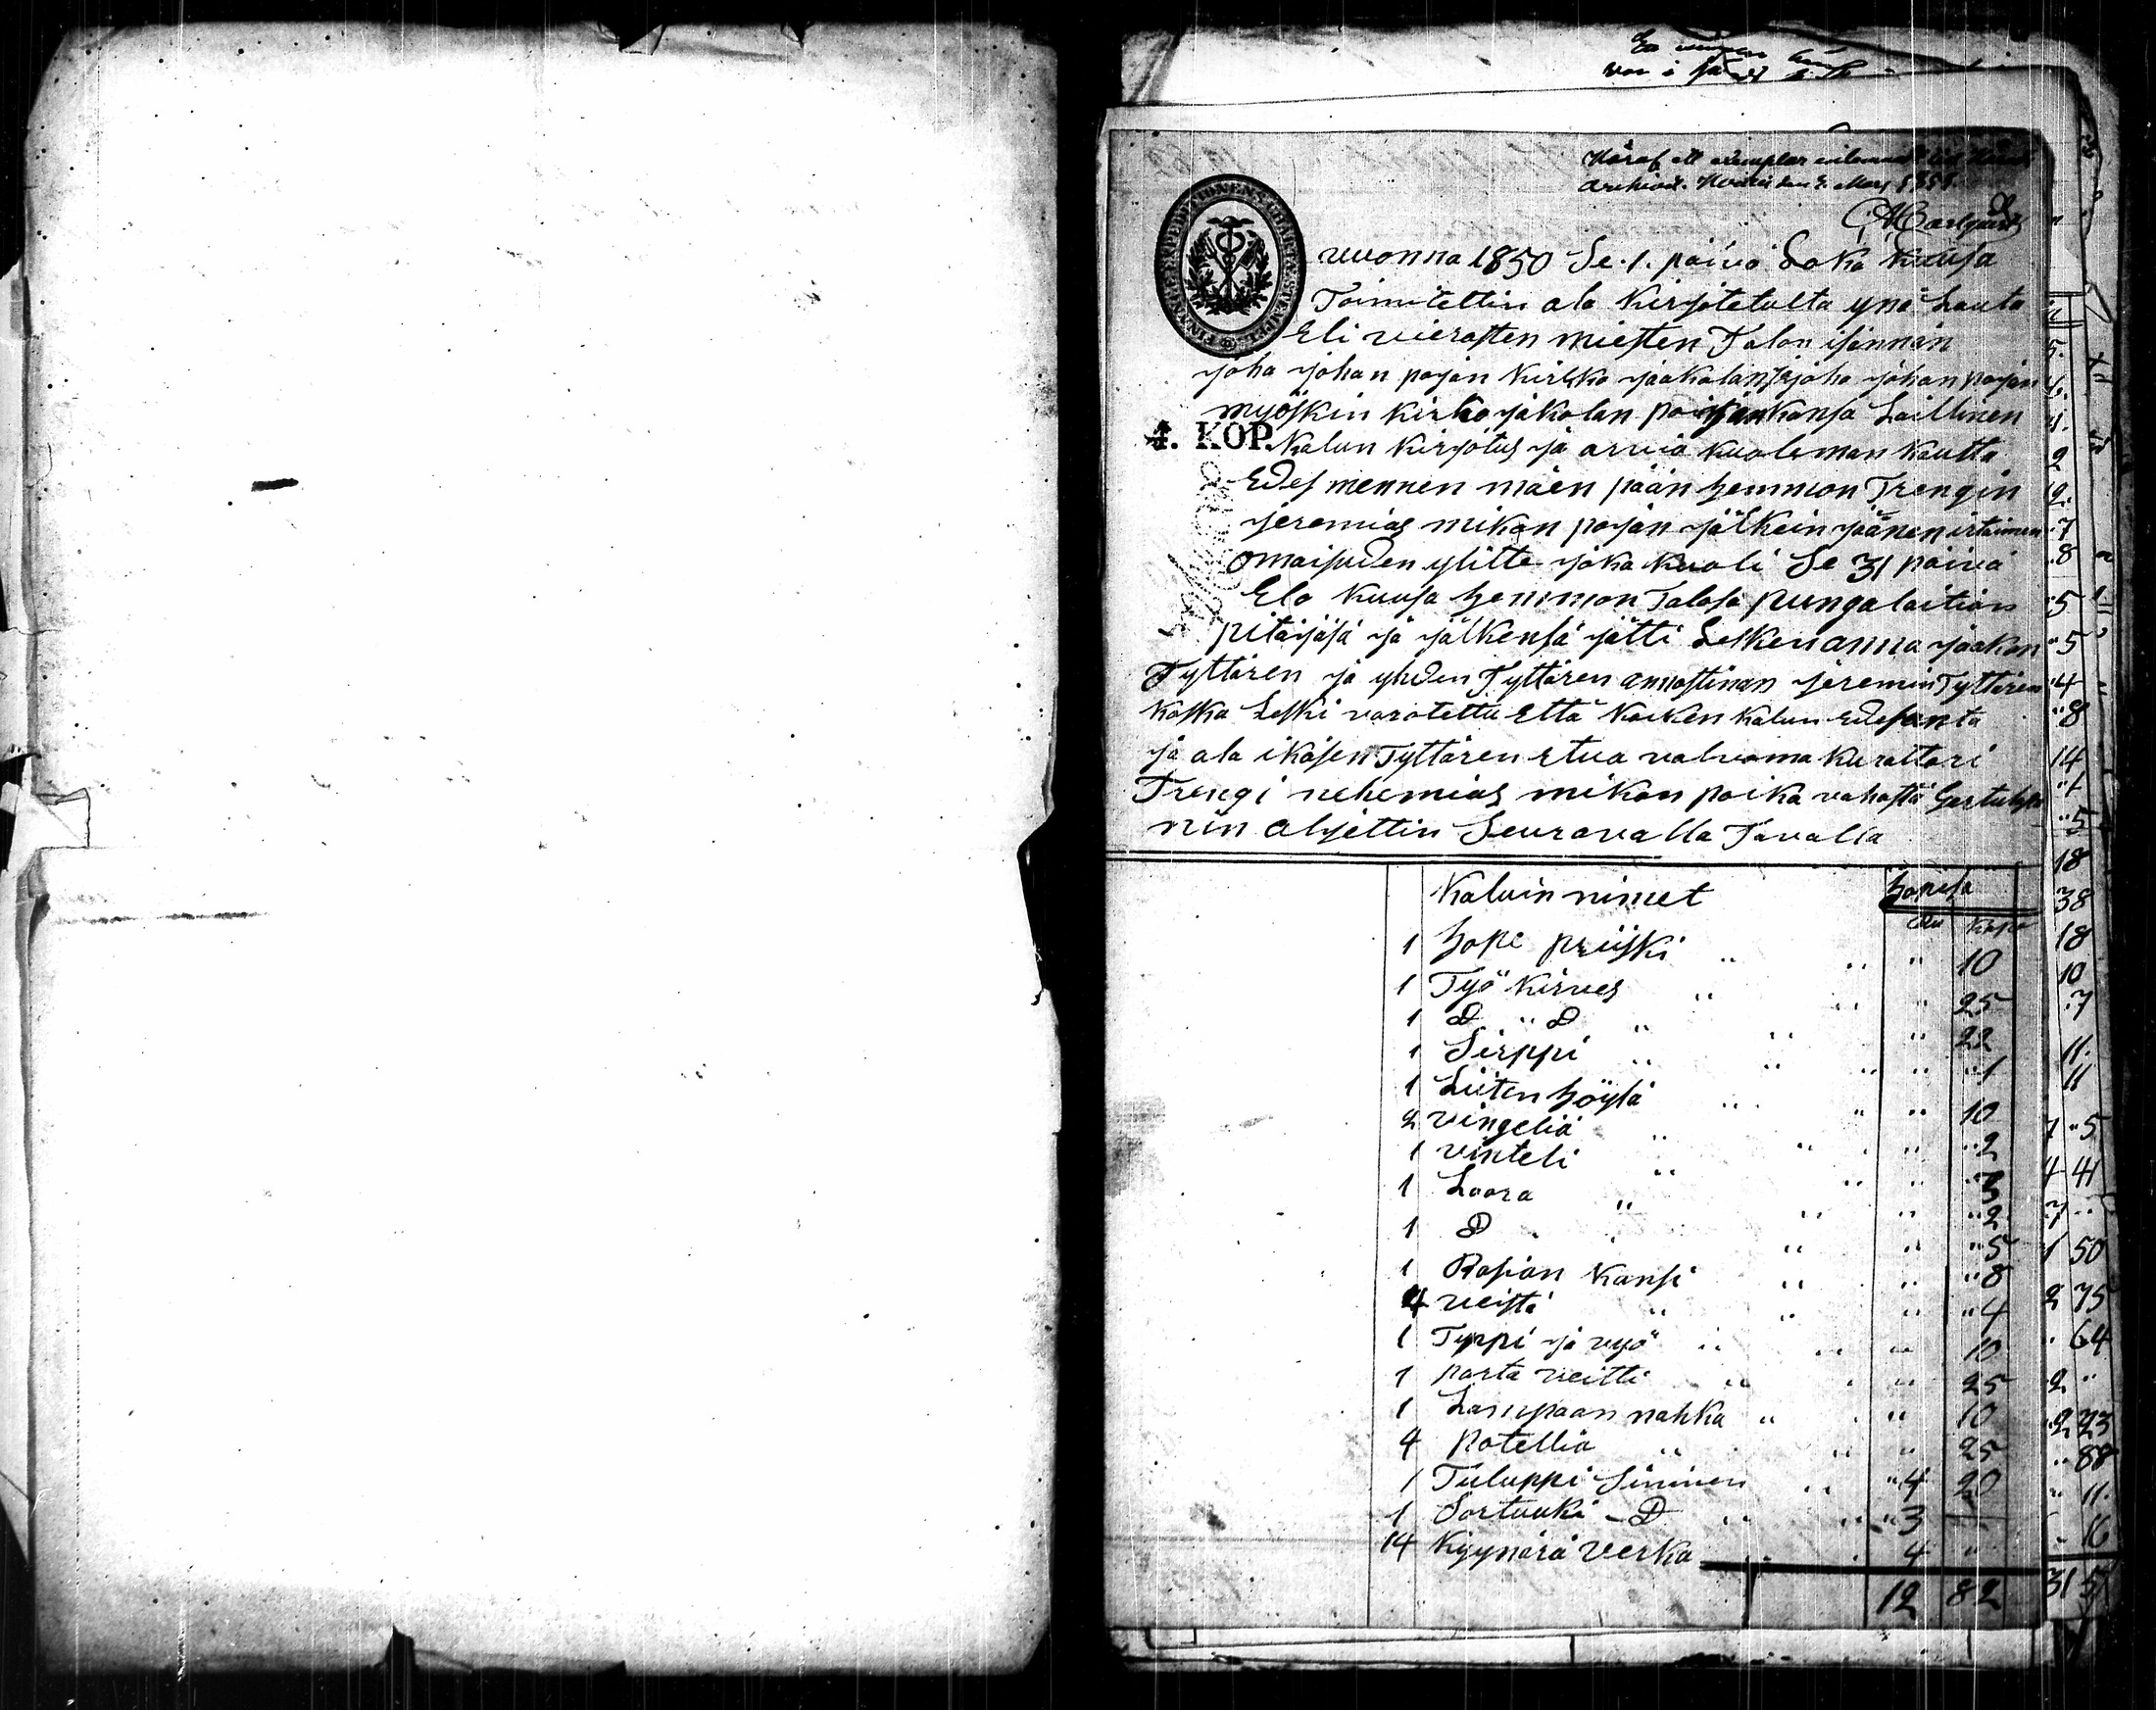 Häraf ett exemplar inlemnadt till Härads
archivet. den 2. Mars 1851.
C A Carlquist
FINSKA EXPEDITIONENS CHARTÆ STEMPEL
4. KOP.
vuonna 1850 Se. 1. päivä Loka kuusa
Toimitettin ala Kirjotetulta ynä Lauta
Eli vierasten miesten Talon isännän
joha johan pojan Kirkko jaakolan ja joha johan pojan
myöskin kirko jakolan pojan kansa Laillinen
Kalun Kirjotus ja arvio kuoleman kautta
Edes mennen mäen pään hemmon Trengin
jeremias mikon pojan jälkein jäänen irtaimen
omaisuden ylitte joka kuoli Se 31 päivä
Elo kuusa hemmon Talosa pungalaitian
pitäjäsä ja jälkensä jätti Lesken anna jaakon
Tyttären ja yhden Tyttären annastinan jeremian Tyttären
koska Leski varotettu Että kaiken kalun edesanta
ja ala ikäsen Tyttären etua valvoma kurattori
Trengi nehemias mikon poika vahasta
nin aljettin Seuravalla Tavalla
Kaluin nimet hopesa
Ru Kope
1 hope priiski " " " 10
1 Työ kirves " " " 25
1 D " D " " " 22
1 Sirppi " " " " 1
1 Liiten höylä " " " 10
2 vingeliä " " " " 2
1 vinteli " " " " 3
1 Loora " " " " 2
1 D " " " 5
1 Rasian kansi " " " 8
4 veistä " " " " 4
1 Typpi ja vyö " " " 10
1 parta veitti " " " 25
1 Lampaan nahka " " " 10
4 potellia " " " 25
1 Tuluppi Sininen " " 4 20
1 Sortuuki D " " 3 —
14 Kyynärä verka " 4 "
12 82
18
38
18
10
7
11
11
7 " 5
4 41
7 "
1 50
2 75
" 64
2 "
2 23
" 88
" 11
" 16
31 51